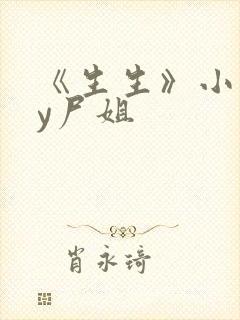 《生生》小
y尸姐
肖永琦